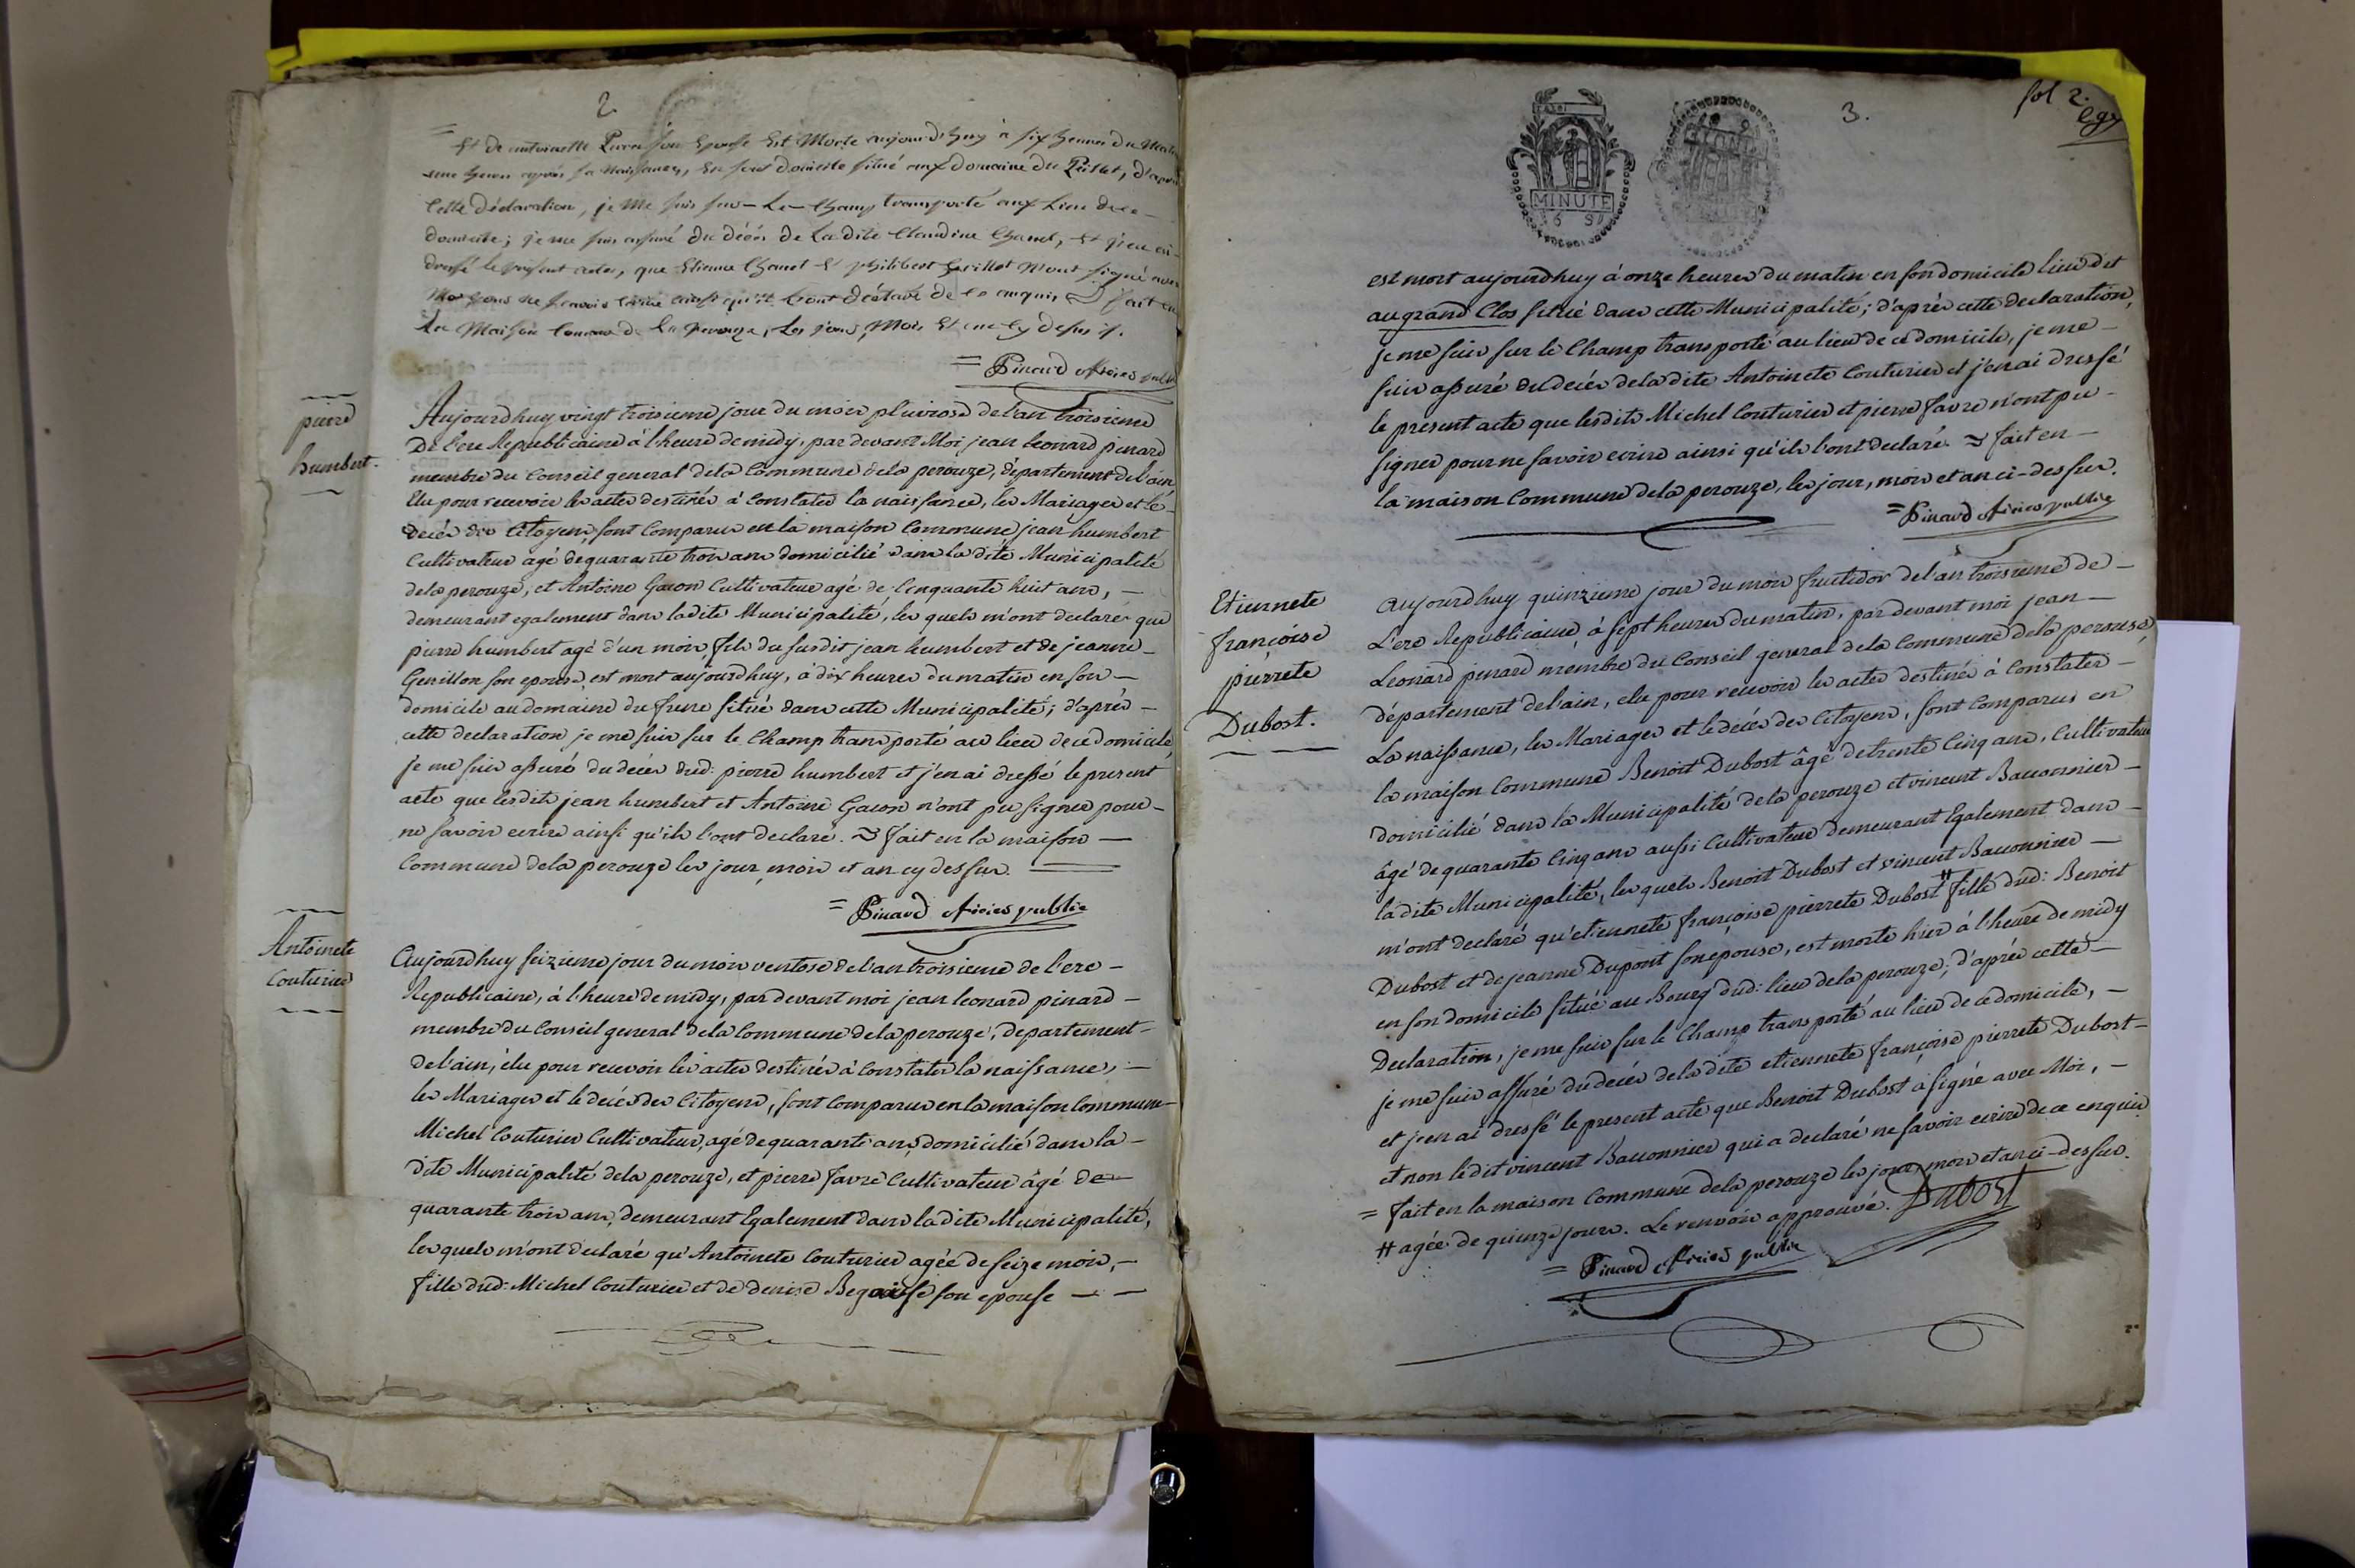 2
et de antoinette son Epouse Est Morte aujourd'huy à six heures du Matin
une heure après sa Naissance, En son domicile situé aux domaine du , d'après
Cette déclaration, je Me suis sur-Le-Champ transporté aux Lieu de ce-
domicile; je me suis assuré du décés de La dite Claudine Chanel, Et j'en ai-
dressé le présent acte, que Etienne Chanel Et philibert M'ont signé avec
Moy ainsi qu'il L'ont déclaré de ce enquis fait en
La Maison Commune de La Perouze, Les jour, Mois Et an Cy dessus.
= Pinard officier public
pierre
humbert.
Aujourdhuy vingt troisieme jour du mois pluviose de l'an troisieme
De l'ere Republicaine à l'heure de midy, par devant Moi jean leonard pinard
membre du Conseil general dela Commune dela perouze, département de l'ain
Elu pour recevoir les actes destinés à Constater la naissance, les Mariages et le
decés des Citoyens, sont Comparus en la maison Commune jean humbert
Cultivateur agé de quarante trois ans domicilié dans la dite Municipalité
dela perouze, et Antoine Gacon Cultivateur agé de Cinquante huit ans, -
demeurant egalement dans ladite Municipalité, les quels m'ont declaré que
pierre humbert agé d'un mois, fils du susdit jean humbert et de jeanne-
Genillon son epouse, est mort aujourdhuy, à dix heures du matin en son-
domicile au domaine du frene situé dans cette Municipalité; d'après-
cette declaration je me suis sur le Champ transporté au lieu de ce domicile
je me suis assuré du decés dud: pierre humbert et j'en ai dressé le present
acte que lesdits jean humbert et Antoine Gacon n'ont pu signer pour-
ne savoir ecrire ainsi qu'ils l'ont declaré. fait en la maison -
Commune dela perouze les jour, mois et an cy dessus.
= Pinard officier public
Antoinete
Couturier
Aujourdhuy seizieme jour du mois ventose de l'an troisieme de l'ere-
Republicaine, à l'heure de midy, par devant moi jean leonard pinard-
membre du Conseil general dela Commune dela perouze, departement-
de l'ain, élu pour recevoir les actes destinés à Constater la naissance,-
les Mariages et le decés des Citoyens, sont Comparus en la maison Commune-
Michel Couturier Cultivateur, agé de quarante ans, domicilié dans la-
dite Municipalité dela perouze, et pierre favre Cultivateur âgé de
quarante trois ans, demeurant Egalement dans la dite Municipalité,
les quels m'ont declaré qu'Antoinete Couturier agée de seize mois,-
fille dud: Michel Couturier et de denise son epouse - -
3.
fol 2.
MINUTE
est mort aujourdhuy à onze heures du matin en son domicile lieu dit
au grand Clos situé dans cette Municipalité; d'après cette declaration,
je me suis sur le Champ transporté au lieu de ce domicile, je me-
suis assuré du decés dela dite Antoinete Couturier et j'en ai dressé
le present acte que lesdits Michel Couturier et pierre favre n'ont pu-
signer pour ne savoir ecrire ainsi qu'ils l'ont declaré. fait en-
la maison Commune dela perouze, les jour, mois et an ci-dessus.
= Pinard officier public
Etiennete
françoise
pierrete
Dubost.
aujourdhuy quinzieme jour du mois fructidor de l'an troisieme de-
L'ere Republicaine, à sept heures du matin, par devant moi jean-
Leonard pinard membre du Conseil general dela Commune dela perouse,
département de l'ain, elu pour recevoir les actes destinés à Constater-
La naissance, les Mariages et le decés des Citoyens, sont Comparus en
la maison Commune Benoit Dubost âgé de trente Cinq ans, Cultivateur
Domicilié dans la Municipalité dela perouze et vincent Bauonnier-
âgé de quarante Cinq ans aussi Cultivateur demeurant Egalement dans-
la dite Municipalité, les quels Benoit Dubost et vincent Bauonnier-
m'ont declaré qu'etiennete françoise pierrete Dubost # fille dud: Benoit
Dubost et de jeanne Dupont son epouse, est morte hier à l'heure de midy
en son domicile situé au Bourg dud: lieu dela perouze; d'après cette-
Declaration, je me suis sur le Champ transporté au lieu de ce domicile, -
je me suis assuré du decés dela dite etiennete françoise pierrete Dubost-
et j'en ai dressé le present acte que Benoit Dubost à signé avec Moi, -
et non ledit vincent Bauonnier qui a declaré ne savoir ecrire de ce enquis
= fait en la maison Commune dela perouze les jour, mois et an ci-dessus.
# agée de quinze jours. Le renvoi approuvé. Dubost
= Pinard officier public